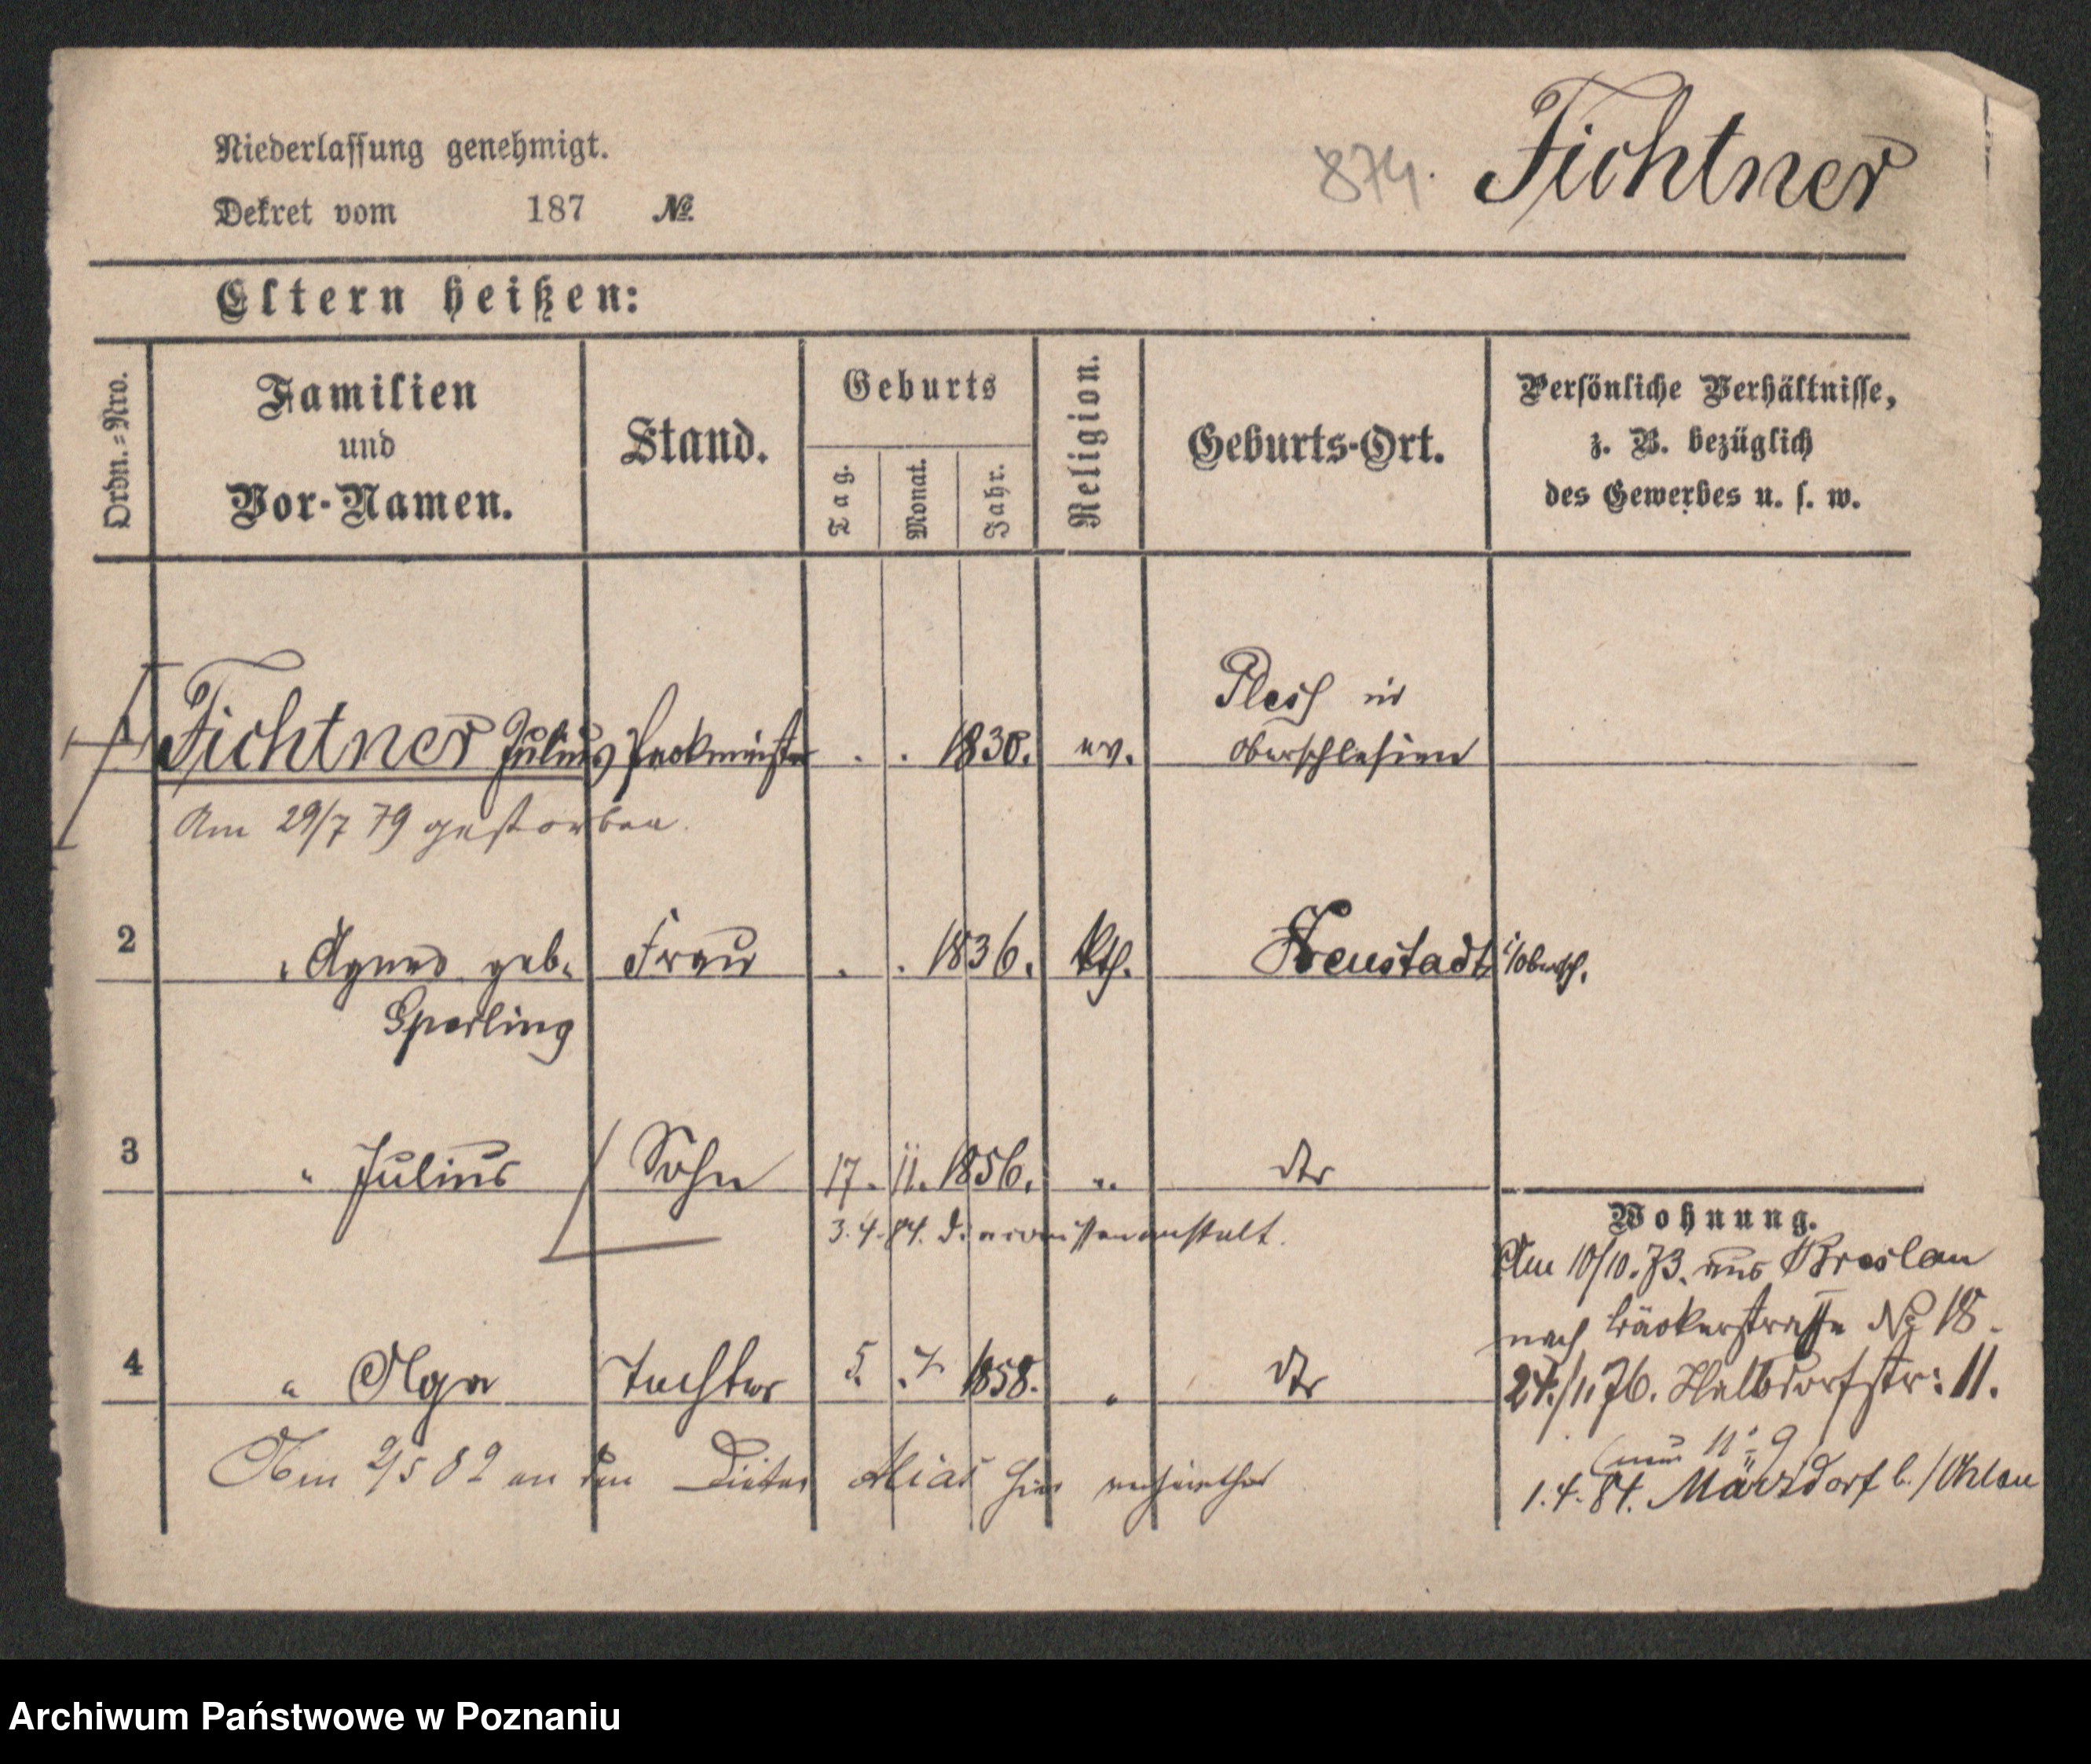 Niederlassung genehmigt.
874. Fichtner
Dekret vom 187 №
Eltern heißen:
Ordn.=Nro.
Familien und Vor-Namen.
Stand.
Geburts
Tag. Monat. Jahr.
Religion.
Geburts-Ort.
Persönliche Verhältnisse,
z. B. bezüglich
des Gewerbes u. s. w.
Fichtner Julius Packmeister . . 1830. ev. Pless in Oberschlesien
Am 29/7 79 gestorben.
2 " Agnes geb. Sperling Frau . . 1836. kth. Neustadt i/Obersch.
3 " Julius Sohn 17. 11. 1856. " dto
3.4.84. Diaconissenanstalt.
4 " Olga Tochter 5. 7 1858. " dto
Am 2/5 82 an den Mias hier verheirathet
Wohnung.
Am 10/10.73. aus Breslau
nach Bäckerstrasse No 18.
24./11 76. Halbdorfstr: 11.
(nun N: 9
1.4.84. Märzdorf b./Ohlau
Archiwum Państwowe w Poznaniu